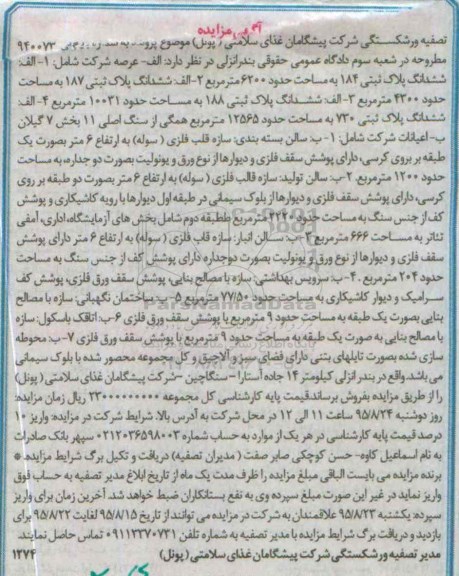 آگهی مزایده
تصفیه ورشکستگی شرکت پیشگامان غذای سلامتی ( پونل) موضوع پرونده به شماره ۹۴۰۰۷۳
مطروحه در شعبه سوم دادگاه عمومی حقوقی بندرانزلی در نظر دارد: الف- عرصه شرکت شامل: ۱- الف:
ششدانگ پلاک ثبتی ۱۸۴ به مساحت حدود ۶۲۰۰ مترمربع ۲- الف: ششدانگ پلاک ثبتی ۱۸۷ به مساحت
حدود ۴۳۰۰ مترمربع ۳- الف: ششدانگ پلاک ثبتی ۱۸۸ به مساحت حدود ۱۰۰۳۱ مترمربع ۴- الف:
ششدانگ پلاک ثبتی ۷۳۰ به مساحت حدود ۱۲۵۶۵ مترمربع همگی از سنگ اصلی ۱۱ بخش ۷ گیلان
ب- اعیانات شرکت شامل: ۱- ب: سالن بسته بندی: سازه قلب فلزی ( سوله) به ارتفاع ۶ متر بصورت یک
طبقه بر بروی کرسی، دارای پوشش سقف فلزی و دیوارها از نوع ورق و یونولیت بصورت دو جداره، به مساحت
حدود ۱۲۰۰ مترمربع. ۲- ب: سالن تولید: سازه قالب فلزی ( سوله) به ارتفاع ۶ متر بصورت دو طبقه بر روی
کرسی، دارای پوشش سقف فلزی و دیوارها از بلوک سیمانی در طبقه اول دیوارها با رویه کاشیکاری و پوشش
کف از جنس سنگ به مساحت حدود ۲۲۲۰ مترمربع ططبقه دوم شامل بخش های آزمایشگاه، اداری، آمفی
تئاتر به مساحت ۶۶۶ مترمربع ۳- ب: سالن انبار: سازه قلب فلزی ( سوله) به ارتفاع ۶ متر دارای پوشش
سقف فلزی و دیوارها از نوع ورق و یونولیت بصورت دوجداره دارای پوشش کف از جنس سنگ به مساحت
حدود ۲۰۴ مترمربع. ۴- ب: سرویس بهداشتی: سازه با مصالح بنایی، پوشش سقف ورق فلزی، پوشش کف
سرامیک و دیوار کاشیکاری به مساحت حدود ۷۷/۵۰ مترمربع ۵- ب: ساختمان نگهبانی: سازه با مصالح
بنایی بصورت یک طبقه به مساحت حدود ۹ مترمربع با پوشش سقف ورق فلزی ۶- ب: اتاقک باسکول: سازه
با مصالح بنایی به صورت یک طبقه به مساحت حدود ۹ مترمربع با پوشش سقف ورق فلزی ۷- ب: محوطه
سازی شده بصورت تایلهای بتنی دارای فضای سبز و آلاچیق و کل مجموعه محصور شده با بلوک سیمانی
می باشد. واقع در بندر انزلی کیلومتر ۱۴ جاده آستارا - سنگاچین - شرکت پیشگامان غذای سلامتی ( پونل)
را از طریق مزایده بفروش برساند. قیمت پایه کارشناسی کل مجموعه ۲۳۰۰۰۰۰۰۰۰۰ ریال زمان مزایده:
روز دوشنبه ۹۵/۸/۲۴ ساعت ۱۱ الی ۱۲ در محل شرکت به آدرس بالا. شرایط شرکت در مزایده: واریز ۱۰
درصد قیمت پایه کارشناسی در هر یک از موارد به حساب شماره ۰۲۱۲۰۳۶۵۹۸۰۰۳ سپهر بانک صادرات
به نام اسماعیل کاوه- حسن کوچکی صابر صفت ( مدیران تصفیه) دریافت و تکمیل برگ شرایط مزایده. *
برنده مزایده می بایست الباقی مبلغ مزایده را ظرف مدت یک ماه از تاریخ ابلاغ مدیر تصفیه به حساب فوق
واریز نماید در غیر این صورت مبلغ سپرده وی به نفع بستانکاران ضبط خواهد شد. آخرین زمان برای واریز
سپرده: یکشنبه ۹۵/۸/۲۳ علاقمندان به شرکت در مزایده می توانند از تاریخ ۹۵/۸/۱۵ لغایت ۹۵/۸/۲۲ برای
بازدید و دریافت برگ شرایط مزایده با مدیر تصفیه به شماره تلفن ۰۹۱۱۳۳۷۰۷۳۱ تماس حاصل نمایند.
مدیر تصفیه ورشکستگی شرکت پیشگامان غذای سلامتی ( پونل) ۱۲۷۴